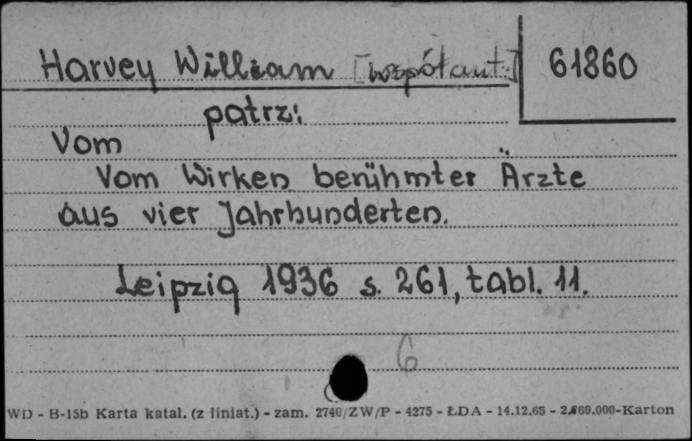 Harvey William [współaut.] 61860
patrz:
Vom
Vom Wirken berühmter Ärzte
aus vier Jahrhunderten.
Leipzig 1936 s. 261, tabl. 11.
6
WD - B-15b Karta katal. (z liniat.) - zam. 2740/ZW/P - 4275 - ŁDA - 14.12.65 - 2.860.000-Karton